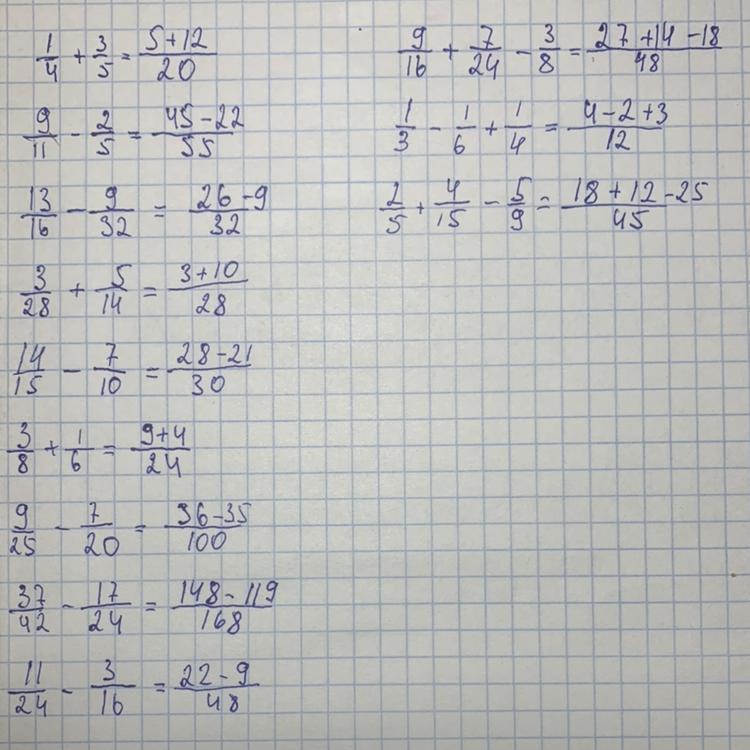 1/4 + 3/5 = (5+12)/20
9/11 - 2/5 = (45-22)/55
13/16 - 9/32 = (26-9)/32
3/28 + 5/14 = (3+10)/28
14/15 - 7/10 = (28-21)/30
3/8 + 1/6 = (9+4)/24
9/25 - 7/20 = (36-35)/100
37/42 - 17/24 = (148-119)/168
11/24 - 3/16 = (22-9)/48
9/16 + 7/24 - 3/8 = (27+14-18)/48
1/3 - 1/6 + 1/4 = (4-2+3)/12
2/5 + 4/15 - 5/9 = (18+12-25)/45